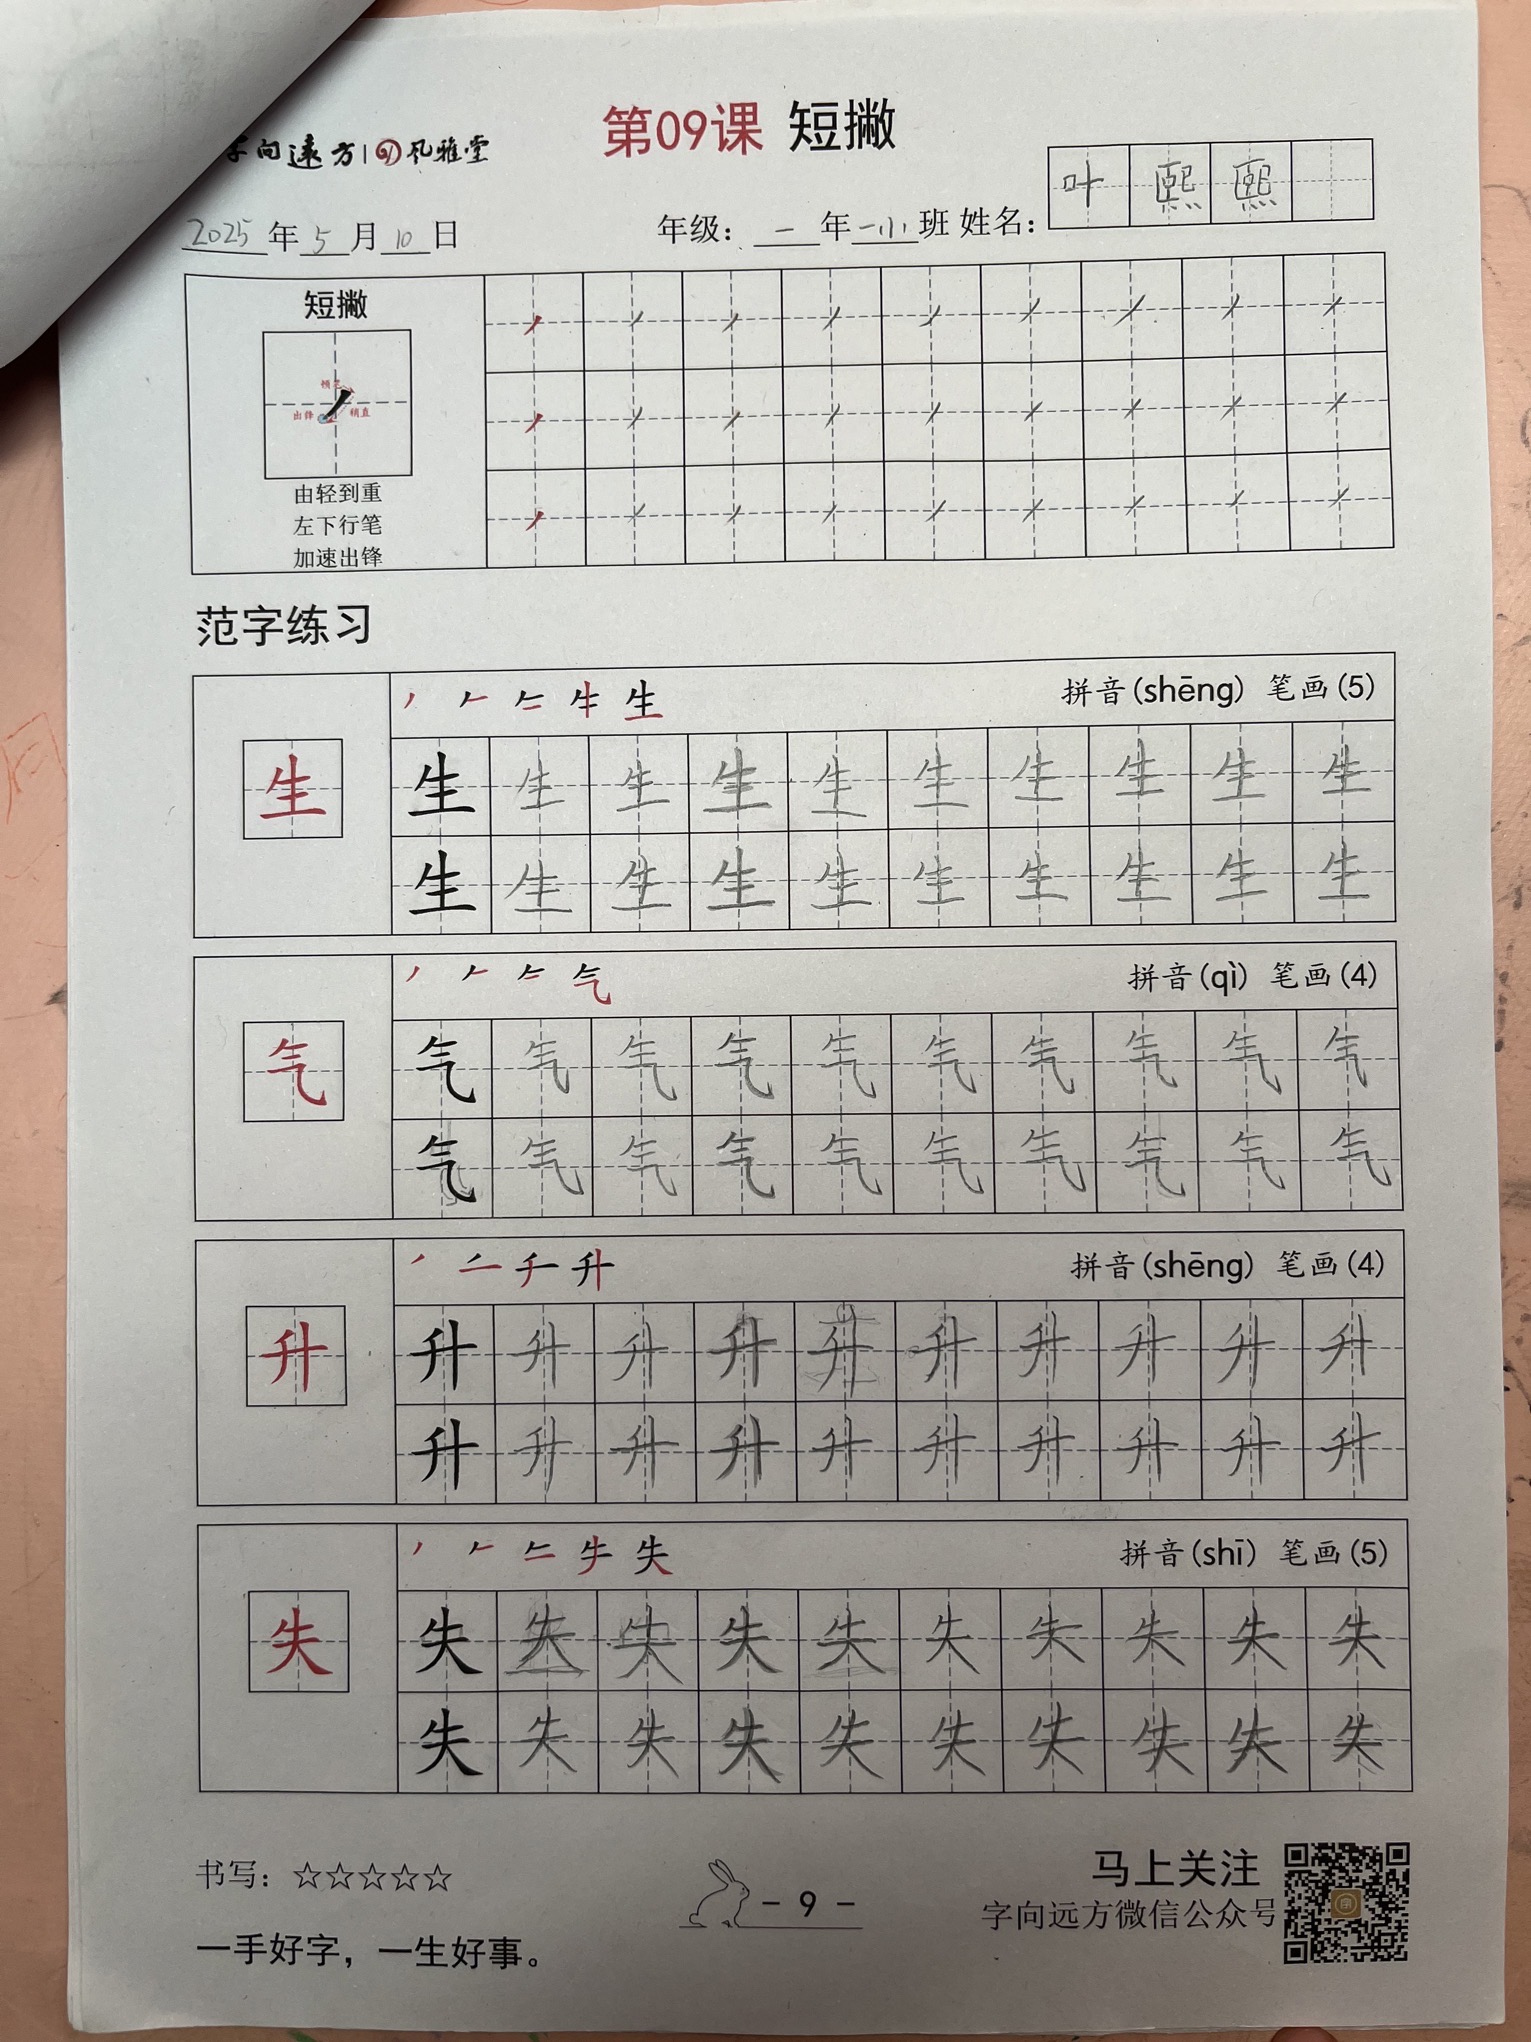 第09课 短撇
字向远方 风雅堂
叶熙熙
2025年5月10日 年级：一年一(小)班 姓名：
短撇
稍直
出锋
由轻到重
左下行笔
加速出锋
范字练习
生 拼音(shēng) 笔画(5)
生 生 生 生 生 生 生 生 生 生 生
生 生 生 生 生 生 生 生 生 生
气 拼音(qì) 笔画(4)
气 气 气 气 气 气 气 气 气 气 气
气 气 气 气 气 气 气 气 气 气
升 拼音(shēng) 笔画(4)
升 升 升 升 升 升 升 升 升 升 升
升 升 升 升 升 升 升 升 升 升
失 拼音(shī) 笔画(5)
失 失 失 失 失 失 失 失 失 失 失
失 失 失 失 失 失 失 失 失 失
书写：☆☆☆☆☆
- 9 -
马上关注
字向远方微信公众号
一手好字，一生好事。